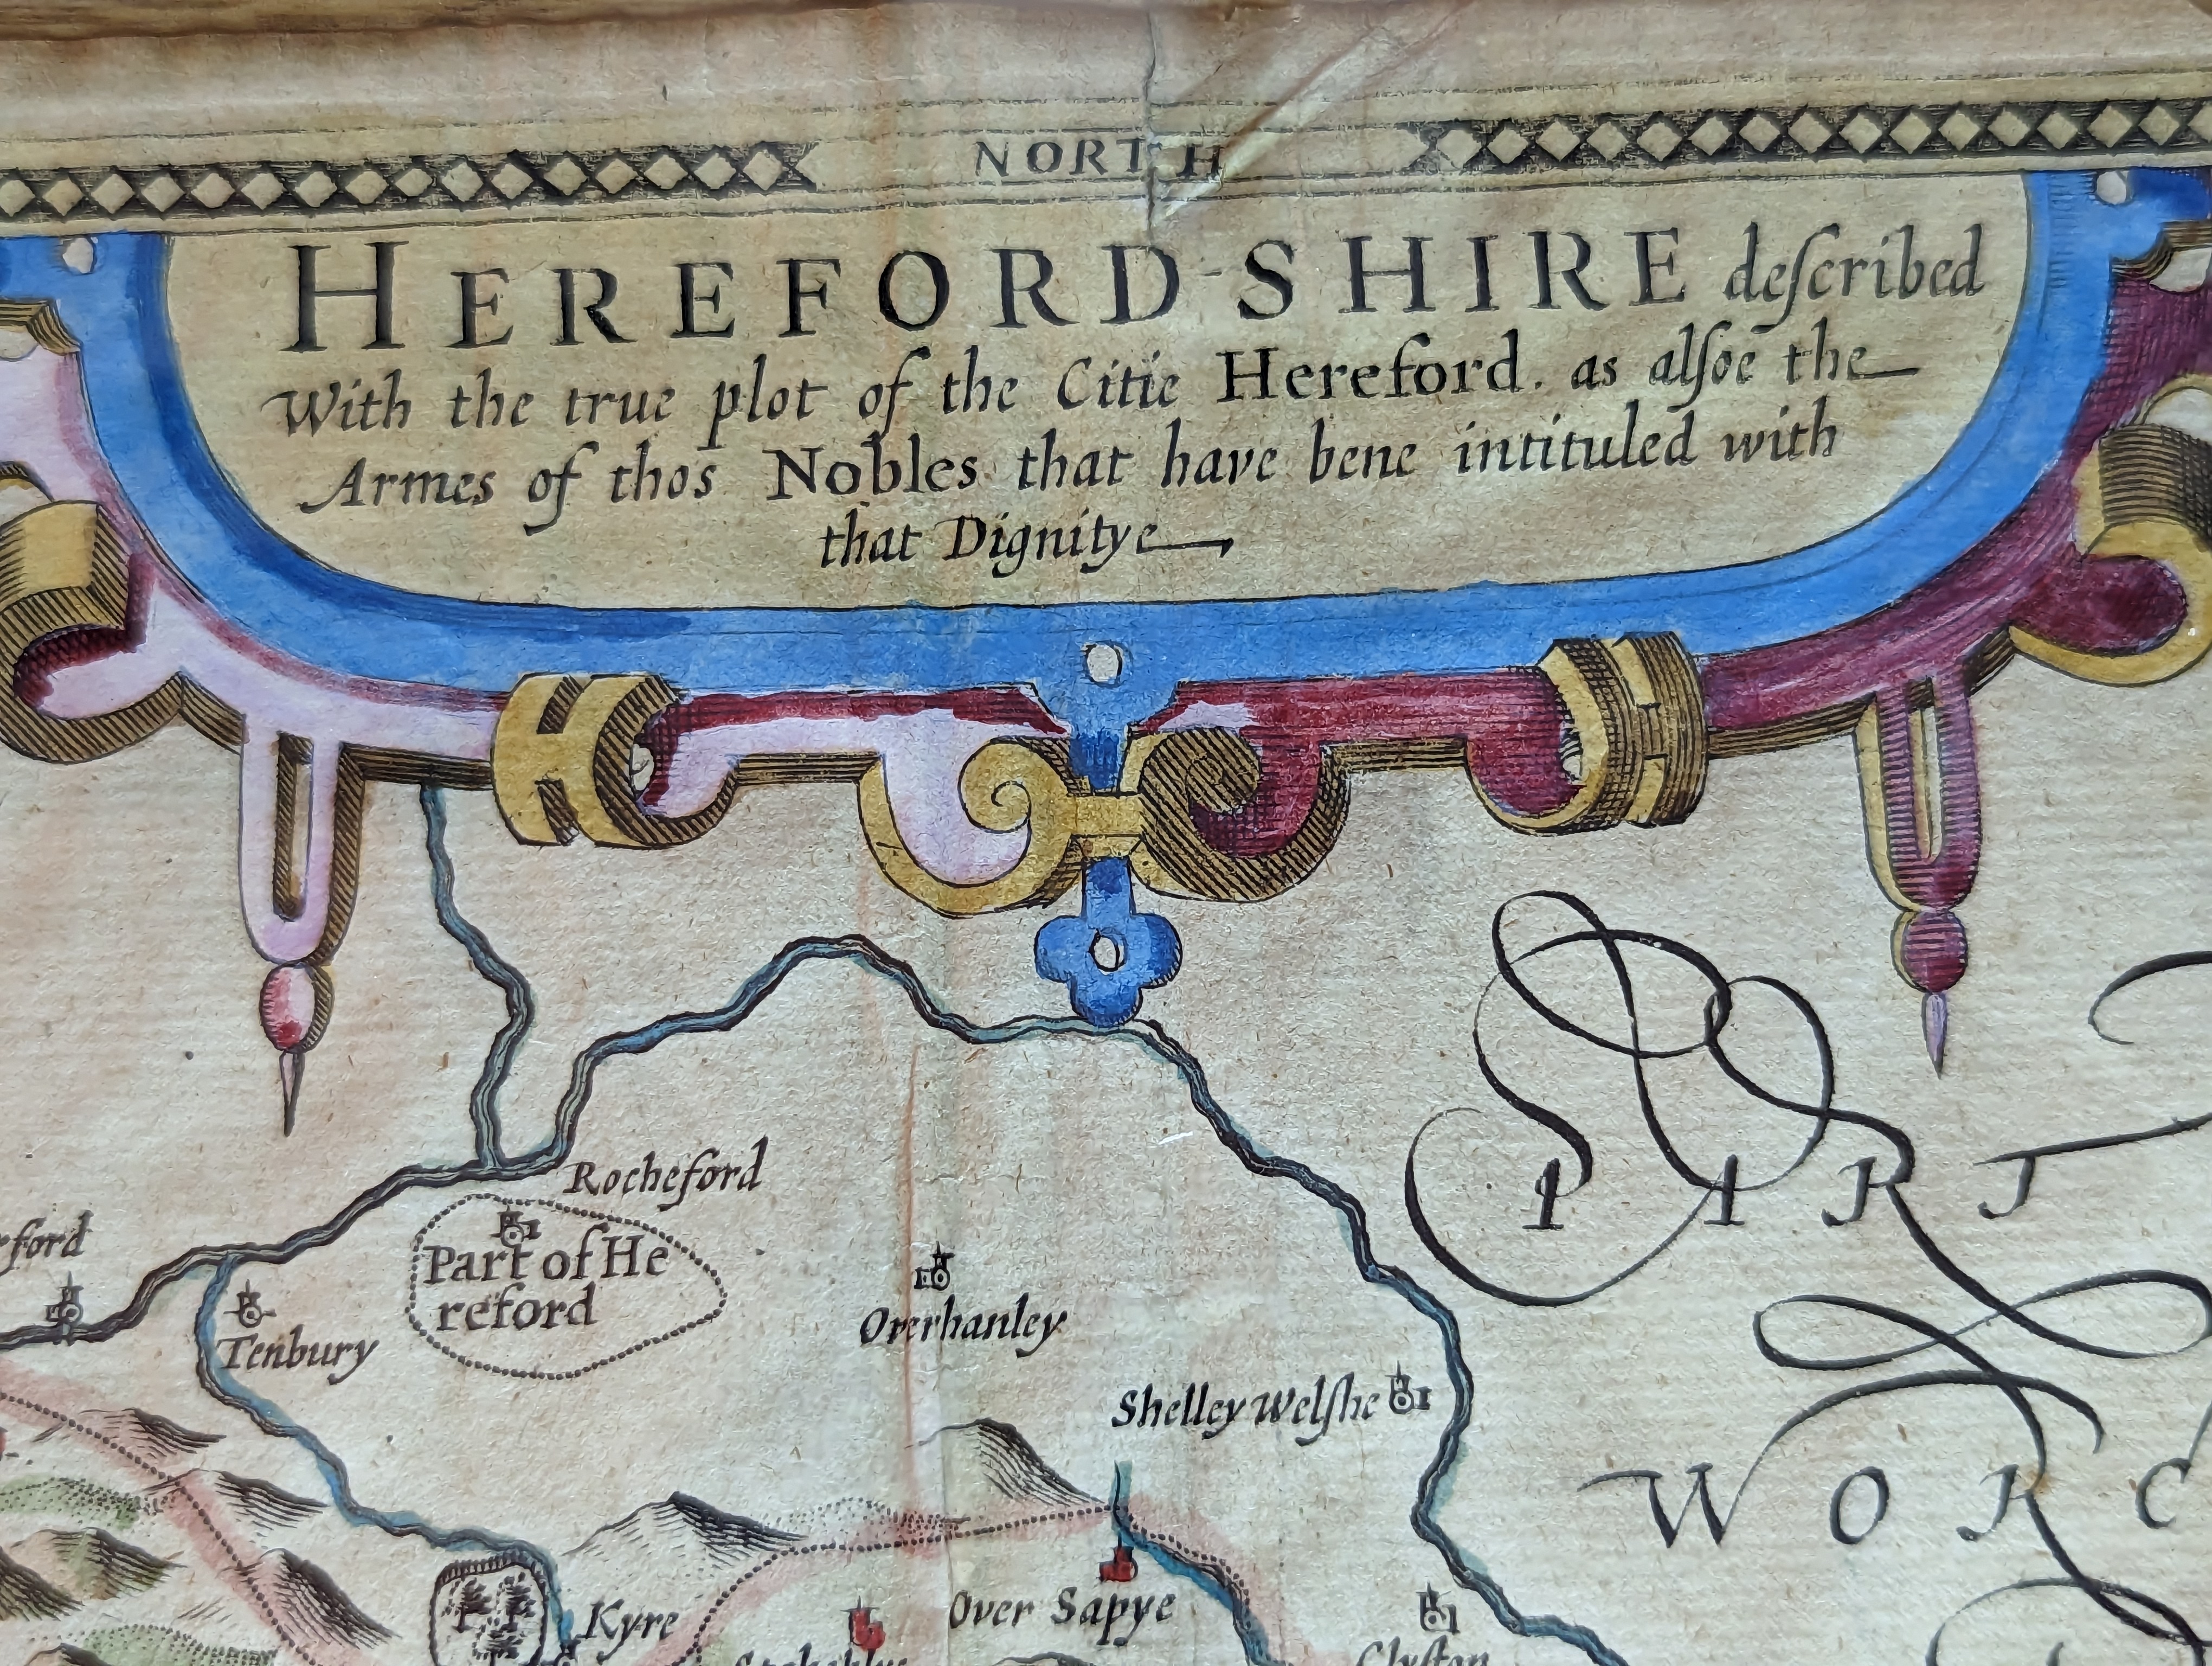 NORTH
HEREFORD-SHIRE deſcribed
With the true plot of the Citie Hereford. as alſoe the
Armes of thos Nobles that have bene intituled with
that Dignitye
Rocheford
Part of He
reford
Tenbury
Overhanley
PART
Shelley Welſhe
WORC
Kyre
Over Sapye
Clyfton